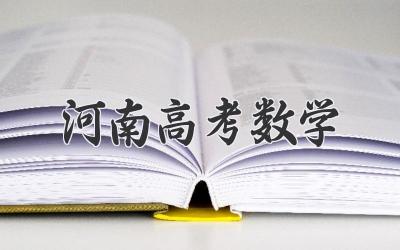 河南高考数学